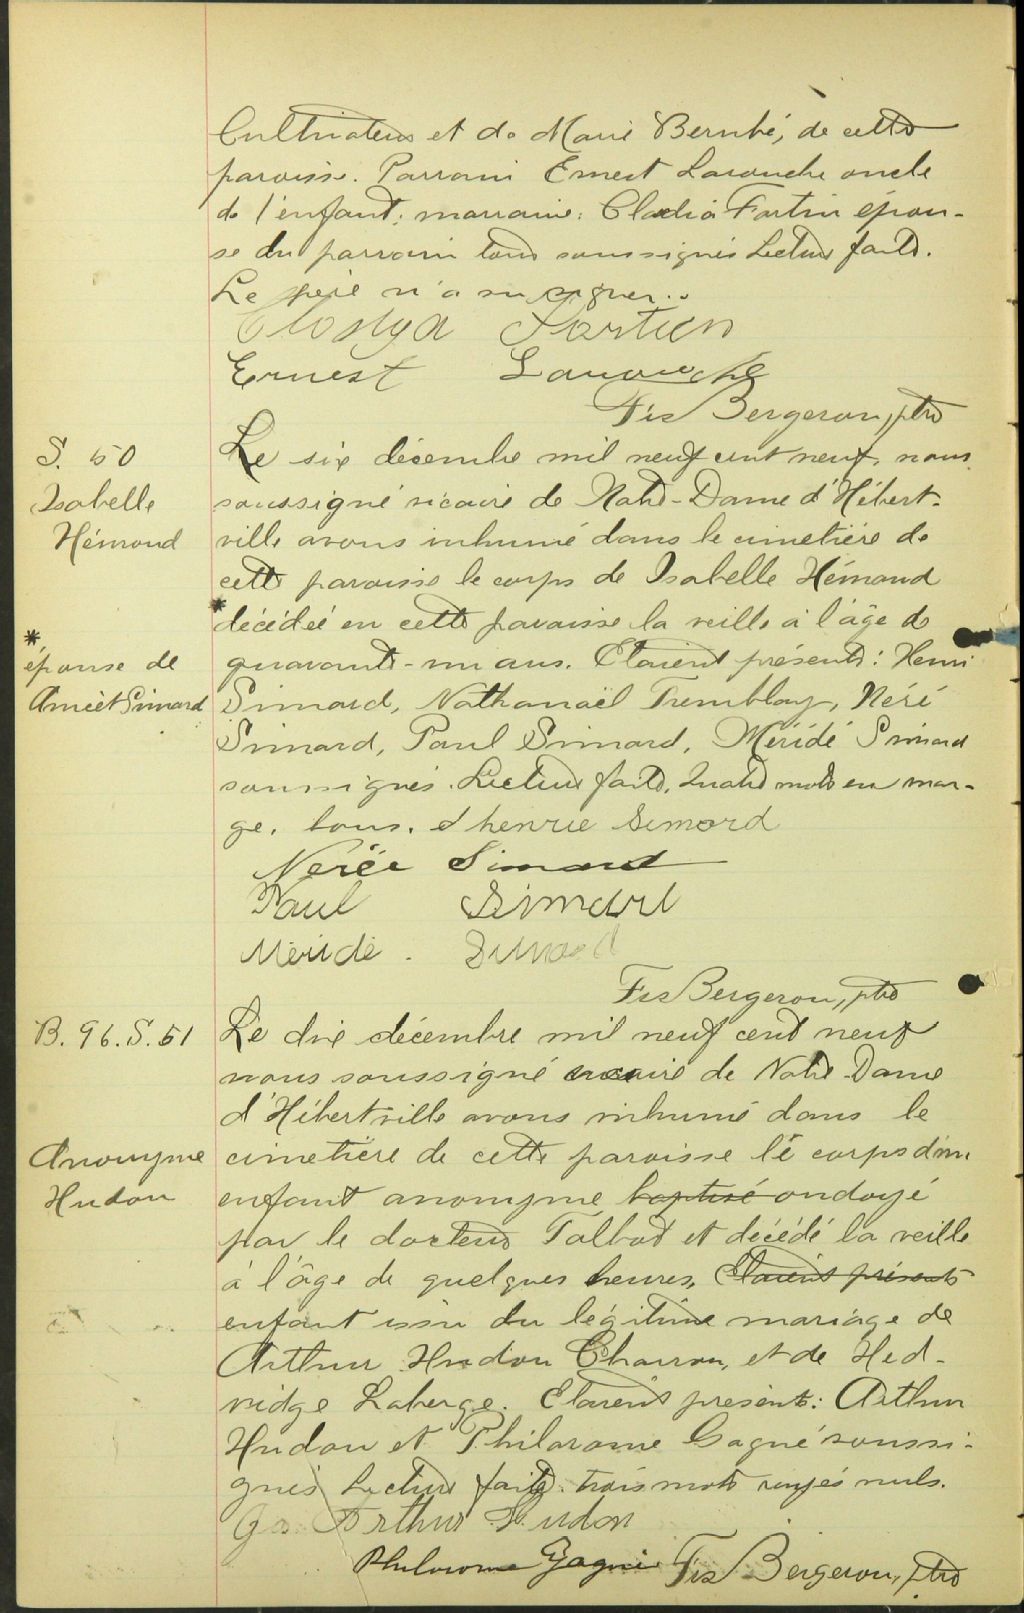 Cultivateur et de Marie Bernbé, de cette
paroisse. Parrain Ernest Larouche oncle
de l'enfant; marraine: Clodia Fortin épou-
se du parrain tous soussignés Lecture faite.
Le père n'a su signer..
Clodya Fortien
Ernest Larouche
Frs Bergeron, ptre
S. 50
Isabelle
Hémond
Le six décembre mil neuf cent neuf, nous
soussigné vicaire de Notre-Dame d'Hébert-
ville avons inhumé dans le cimetière de
cette paroisse le corps de Isabelle Hémond
* décédée en cette paroisse la veille à l'âge de
* épouse de
Améêt Simard
quarante-un ans. Etaient présents: Henri
Simard, Nathanaël Tremblay, Néré
Simard, Paul Simard, Méridé Simard
soussignés. Lecture faite. Quatre mots en mar-
ge. bons. henrie Simord
Nerée Simard
Paul Simard
Méridé. Simard
Frs Bergeron, ptre
B. 96. S. 51
Anonyme
Hudon
Le dix décembre mil neuf cent neuf
nous soussigné vicaire de Notre Dame
d'Hébertville avons inhumé dans le
cimetière de cette paroisse le corps d'un
enfant anonyme baptisé ondoyé
par le docteur Talbot et décédé la veille
à l'âge de quelques heures, Etaient présents
enfant issu du légitime mariage de
Arthur Hudon Charron, et de Hed-
vidge Laberge. Etaient présents: Arthur
Hudon et Philorome Gagné soussi-
gnés Lecture faite. trois mots rayés nuls.
Arthur Hudon
Philorome Gagné Frs Bergeron, ptre